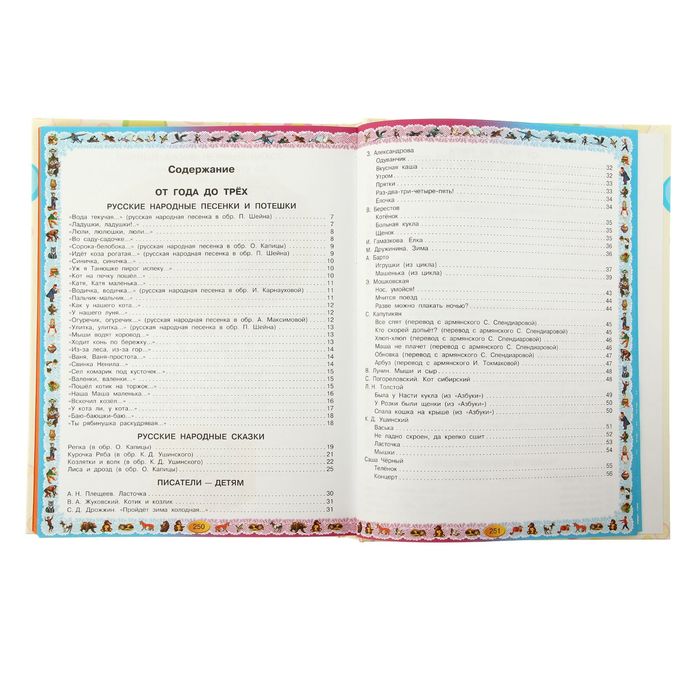 Содержание
ОТ ГОДА ДО ТРЁХ
РУССКИЕ НАРОДНЫЕ ПЕСЕНКИ И ПОТЕШКИ
«Вода текучая...» (русская народная песенка в обр. П. Шейна) 7
«Ладушки, ладушки!..» 7
«Люли, люлюшки, люли...» 8
«Во саду-садочке...» 8
«Сорока-белобока...» (русская народная песенка в обр. О. Капицы) 9
«Идёт коза рогатая...» (русская народная песенка в обр. П. Шейна) 9
«Синичка, синичка...» 10
«Уж я Танюшке пирог испеку...» 10
«Кот на печку пошёл...» 10
«Катя, Катя маленька...» 11
«Водичка, водичка...» (русская народная песенка в обр. И. Карнауховой) 11
«Пальчик-мальчик...» 11
«Как у нашего кота...» 12
«У нашего луня...» 12
«Огуречик, огуречик...» (русская народная песенка в обр. А. Максимовой) 12
«Улитка, улитка...» (русская народная песенка в обр. П. Шейна) 13
«Мыши водят хоровод...» 13
«Ходит конь по бережку...» 13
«Из-за леса, из-за гор...» 14
«Ваня, Ваня-простота...» 14
«Свинка Ненила...» 14
«Сел комарик под кусточек...» 15
«Валенки, валенки...» 15
«Пошёл котик на торжок...» 16
«Наша Маша маленька...» 16
«Вскочил козёл...» 16
«У кота ли, у кота...» 17
«Баю-баюшки-баю...» 18
«Ты рябинушка раскудрявая...» 18
РУССКИЕ НАРОДНЫЕ СКАЗКИ
Репка (в обр. О. Капицы) 19
Курочка Ряба (в обр. К. Д. Ушинского) 21
Козлятки и волк (в обр. К. Д. Ушинского) 22
Лиса и дрозд (в обр. О. Капицы) 25
ПИСАТЕЛИ — ДЕТЯМ
А. Н. Плещеев. Ласточка 30
В. А. Жуковский. Котик и козлик 31
С. Д. Дрожжин. «Пройдет зима холодная...» 31
250
З. Александрова
Одуванчик 32
Вкусная каша 32
Утром 33
Прятки 33
Раз-два-три-четыре-пять!
Ёлочка
В. Берестов
Котёнок
Больная кукла
Щенок
И. Гамазкова Ёлка
М. Дружинина. Зима
А. Барто
Игрушки (из цикла) 37
Машенька (из цикла) 39
Э. Мошковская
Нос, умойся! 43
Мчится поезд 44
Разве можно плакать ночью? 44
С. Капутикян
Все спят (перевод с армянского С. Спендиаровой) 45
Кто скорей допьёт? (перевод с армянского С. Спендиаровой) 45
Хлюп-хлюп (перевод с армянского С. Спендиаровой) 46
Маша не плачет (перевод с армянского С. Спендиаровой) 46
Обновка (перевод с армянского С. Спендиаровой)
Арбуз (перевод с армянского И. Токмаковой)
В. Лунин. Мыши и сыр
С. Погореловский. Кот сибирский
Л. Н. Толстой
Была у Насти кукла (из «Азбуки») 49
У Розки были щенки (из «Азбуки») 50
Спала кошка на крыше (из «Азбуки») 50
К. Д. Ушинский
Васька 51
Не ладно скроен, да крепко сшит 52
Ласточка 53
Мышки 54
Саша Чёрный
Телёнок 55
Концерт 56
251